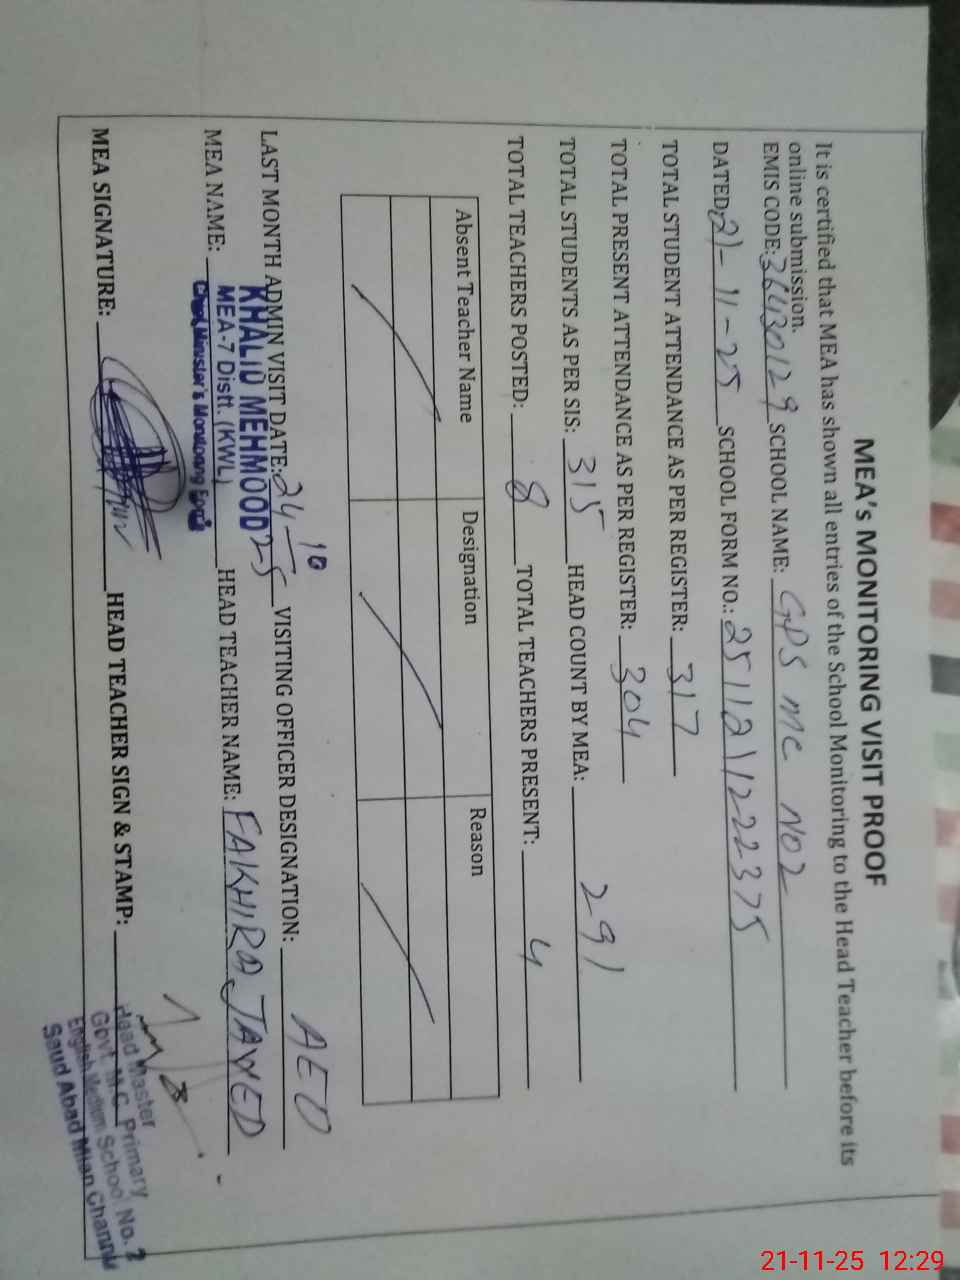 MEA's MONITORING VISIT PROOF
It is certified that MEA has shown all entries of the School Monitoring to the Head Teacher before its
online submission.
EMIS CODE: 36430129 SCHOOL NAME: GPS MC NO2
DATED: 21-11-25 SCHOOL FORM NO.: 251121122375
TOTAL STUDENT ATTENDANCE AS PER REGISTER: 317
TOTAL PRESENT ATTENDANCE AS PER REGISTER: 304
TOTAL STUDENTS AS PER SIS: 315 HEAD COUNT BY MEA: 291
TOTAL TEACHERS POSTED: 8 TOTAL TEACHERS PRESENT: 4
Absent Teacher Name Designation Reason
LAST MONTH ADMIN VISIT DATE: 24-10-25 VISITING OFFICER DESIGNATION: AEO
MEA NAME: HEAD TEACHER NAME: FAKHIRA JAWED
KHALID MEHMOOD
MEA-7 Distt. (KWL)
Chief Minister's Monitoring Force
MEA SIGNATURE: HEAD TEACHER SIGN & STAMP:
Head Master
Govt. M.C. Primary
English Medium School No. 2
Saud Abad Mian Channu
21-11-25 12:29